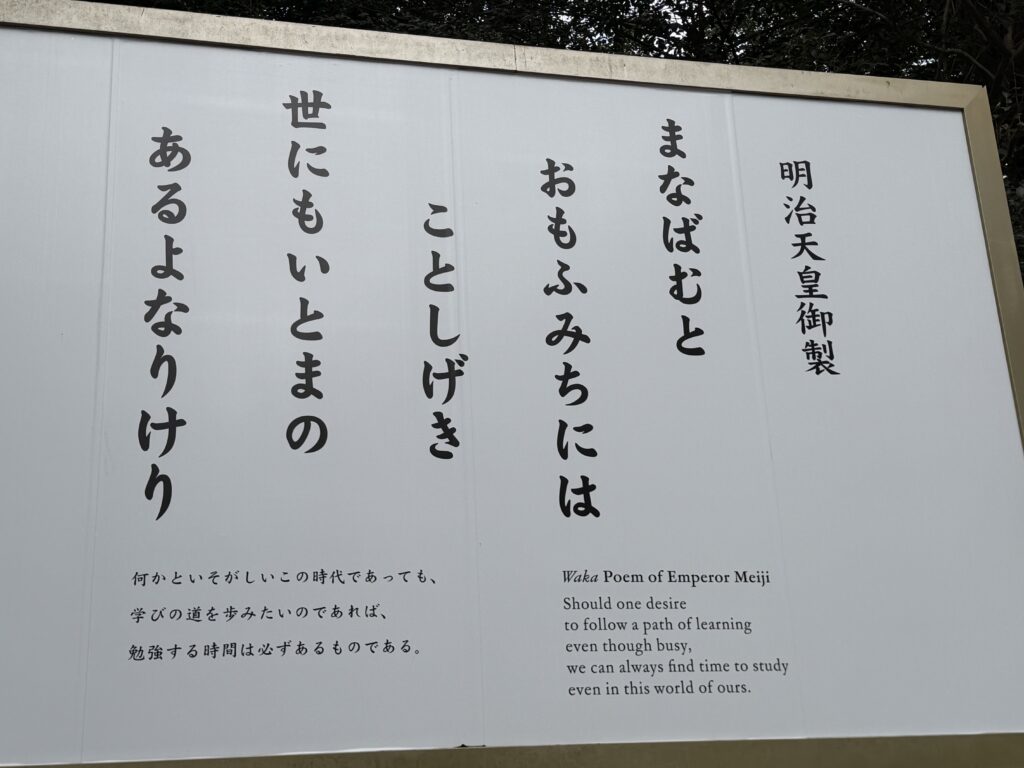 明治天皇御製
まなばむと
おもふみちには
ことしげき
世にもいとまの
あるよなりけり
何かといそがしいこの時代であっても、
学びの道を歩みたいのであれば、
勉強する時間は必ずあるものである。
Waka Poem of Emperor Meiji
Should one desire
to follow a path of learning
even though busy,
we can always find time to study
even in this world of ours.